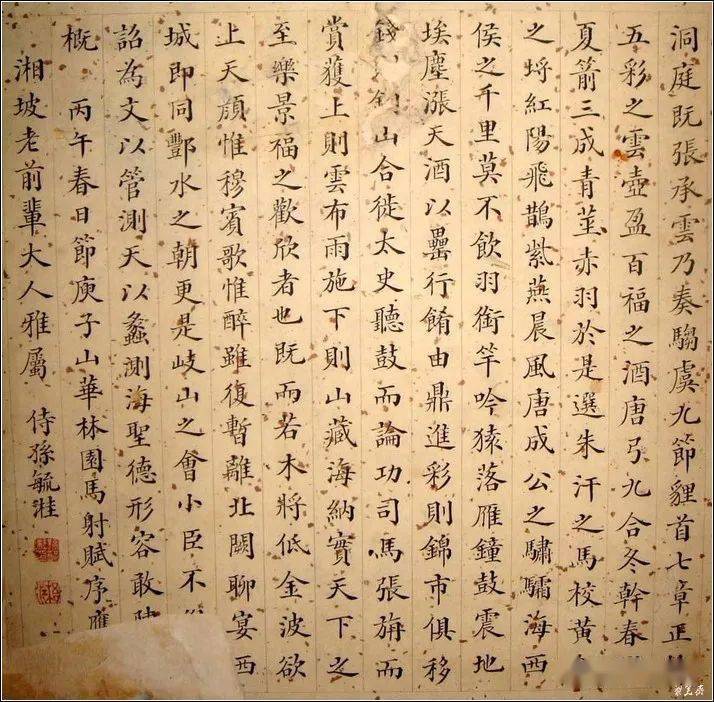 洞庭既張承雲乃奏騶虞九節貍首七章正
五彩之雲壺盈百福之酒唐弓九合冬幹春
夏箭三成青莖赤羽於是選朱汗之馬校黃
之埒紅陽飛鵲紫燕晨風唐成公之驌驦海西
侯之千里莫不飲羽銜竿吟猿落雁鐘鼓震地
埃塵漲天酒以罍行餚由鼎進彩則錦市俱移
錢山合徙太史聽鼓而論功司馬張旃而
賞獲上則雲布雨施下則山藏海納實天下之
至樂景福之歡欣者也既而若木將低金波欲
上天顏惟穆賓歌惟醉雖復暫離北闕聊宴西
城即同酆水之朝更是岐山之會小臣不
詔為文以管測天以蠡測海聖德形容敢
概 丙午春日節庾子山華林園馬射賦序應
湘坡老前輩大人雅屬 侍孫毓溎